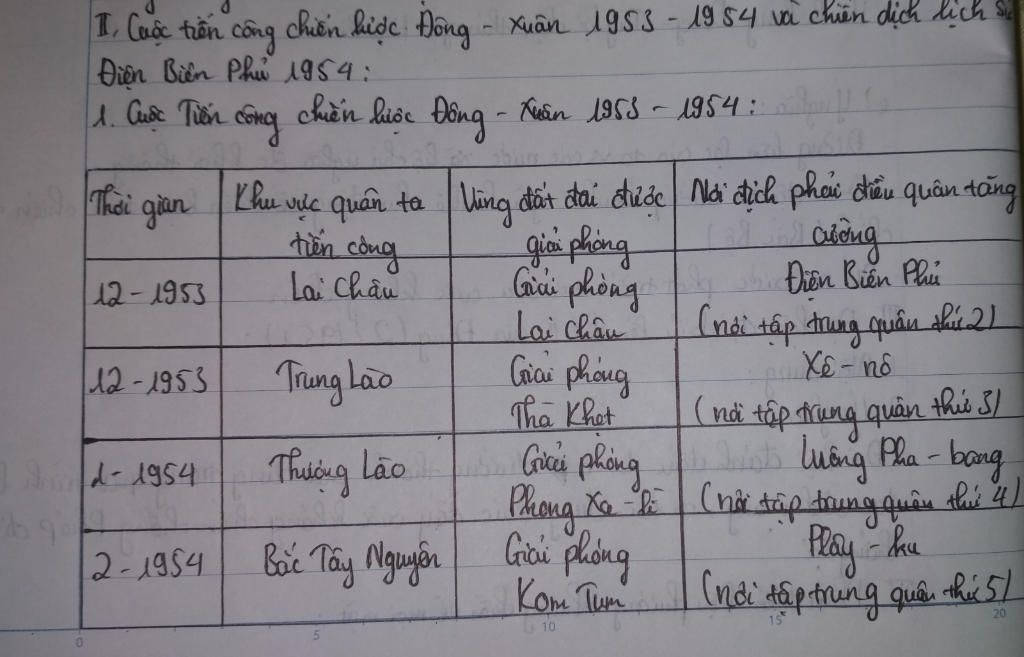 II, Cuộc tiến công chiến lược Đông - Xuân 1953 - 1954 và chiến dịch lịch sử
Điện Biên Phủ 1954 :
1. Cuộc Tiến công chiến lược Đông - Xuân 1953 - 1954 :
Thời gian
Khu vực quân ta
tiến công
Vùng đất đai được
giải phóng
Nơi địch phải điều quân tăng
cường
12 - 1953
Lai Châu
Giải phóng
Lai Châu
Điện Biên Phủ
(nơi tập trung quân thứ 2)
12 - 1953
Trung Lào
Giải phóng
Thà Khẹt
Xê - nô
(nơi tập trung quân thứ 3)
1 - 1954
Thượng Lào
Giải phóng
Phong Xa - lì
Luông Pha - bang
(nơi tập trung quân thứ 4)
2 - 1954
Bắc Tây Nguyên
Giải phóng
Kom Tum
Plây - ku
(nơi tập trung quân thứ 5)
0 5 10 15 20